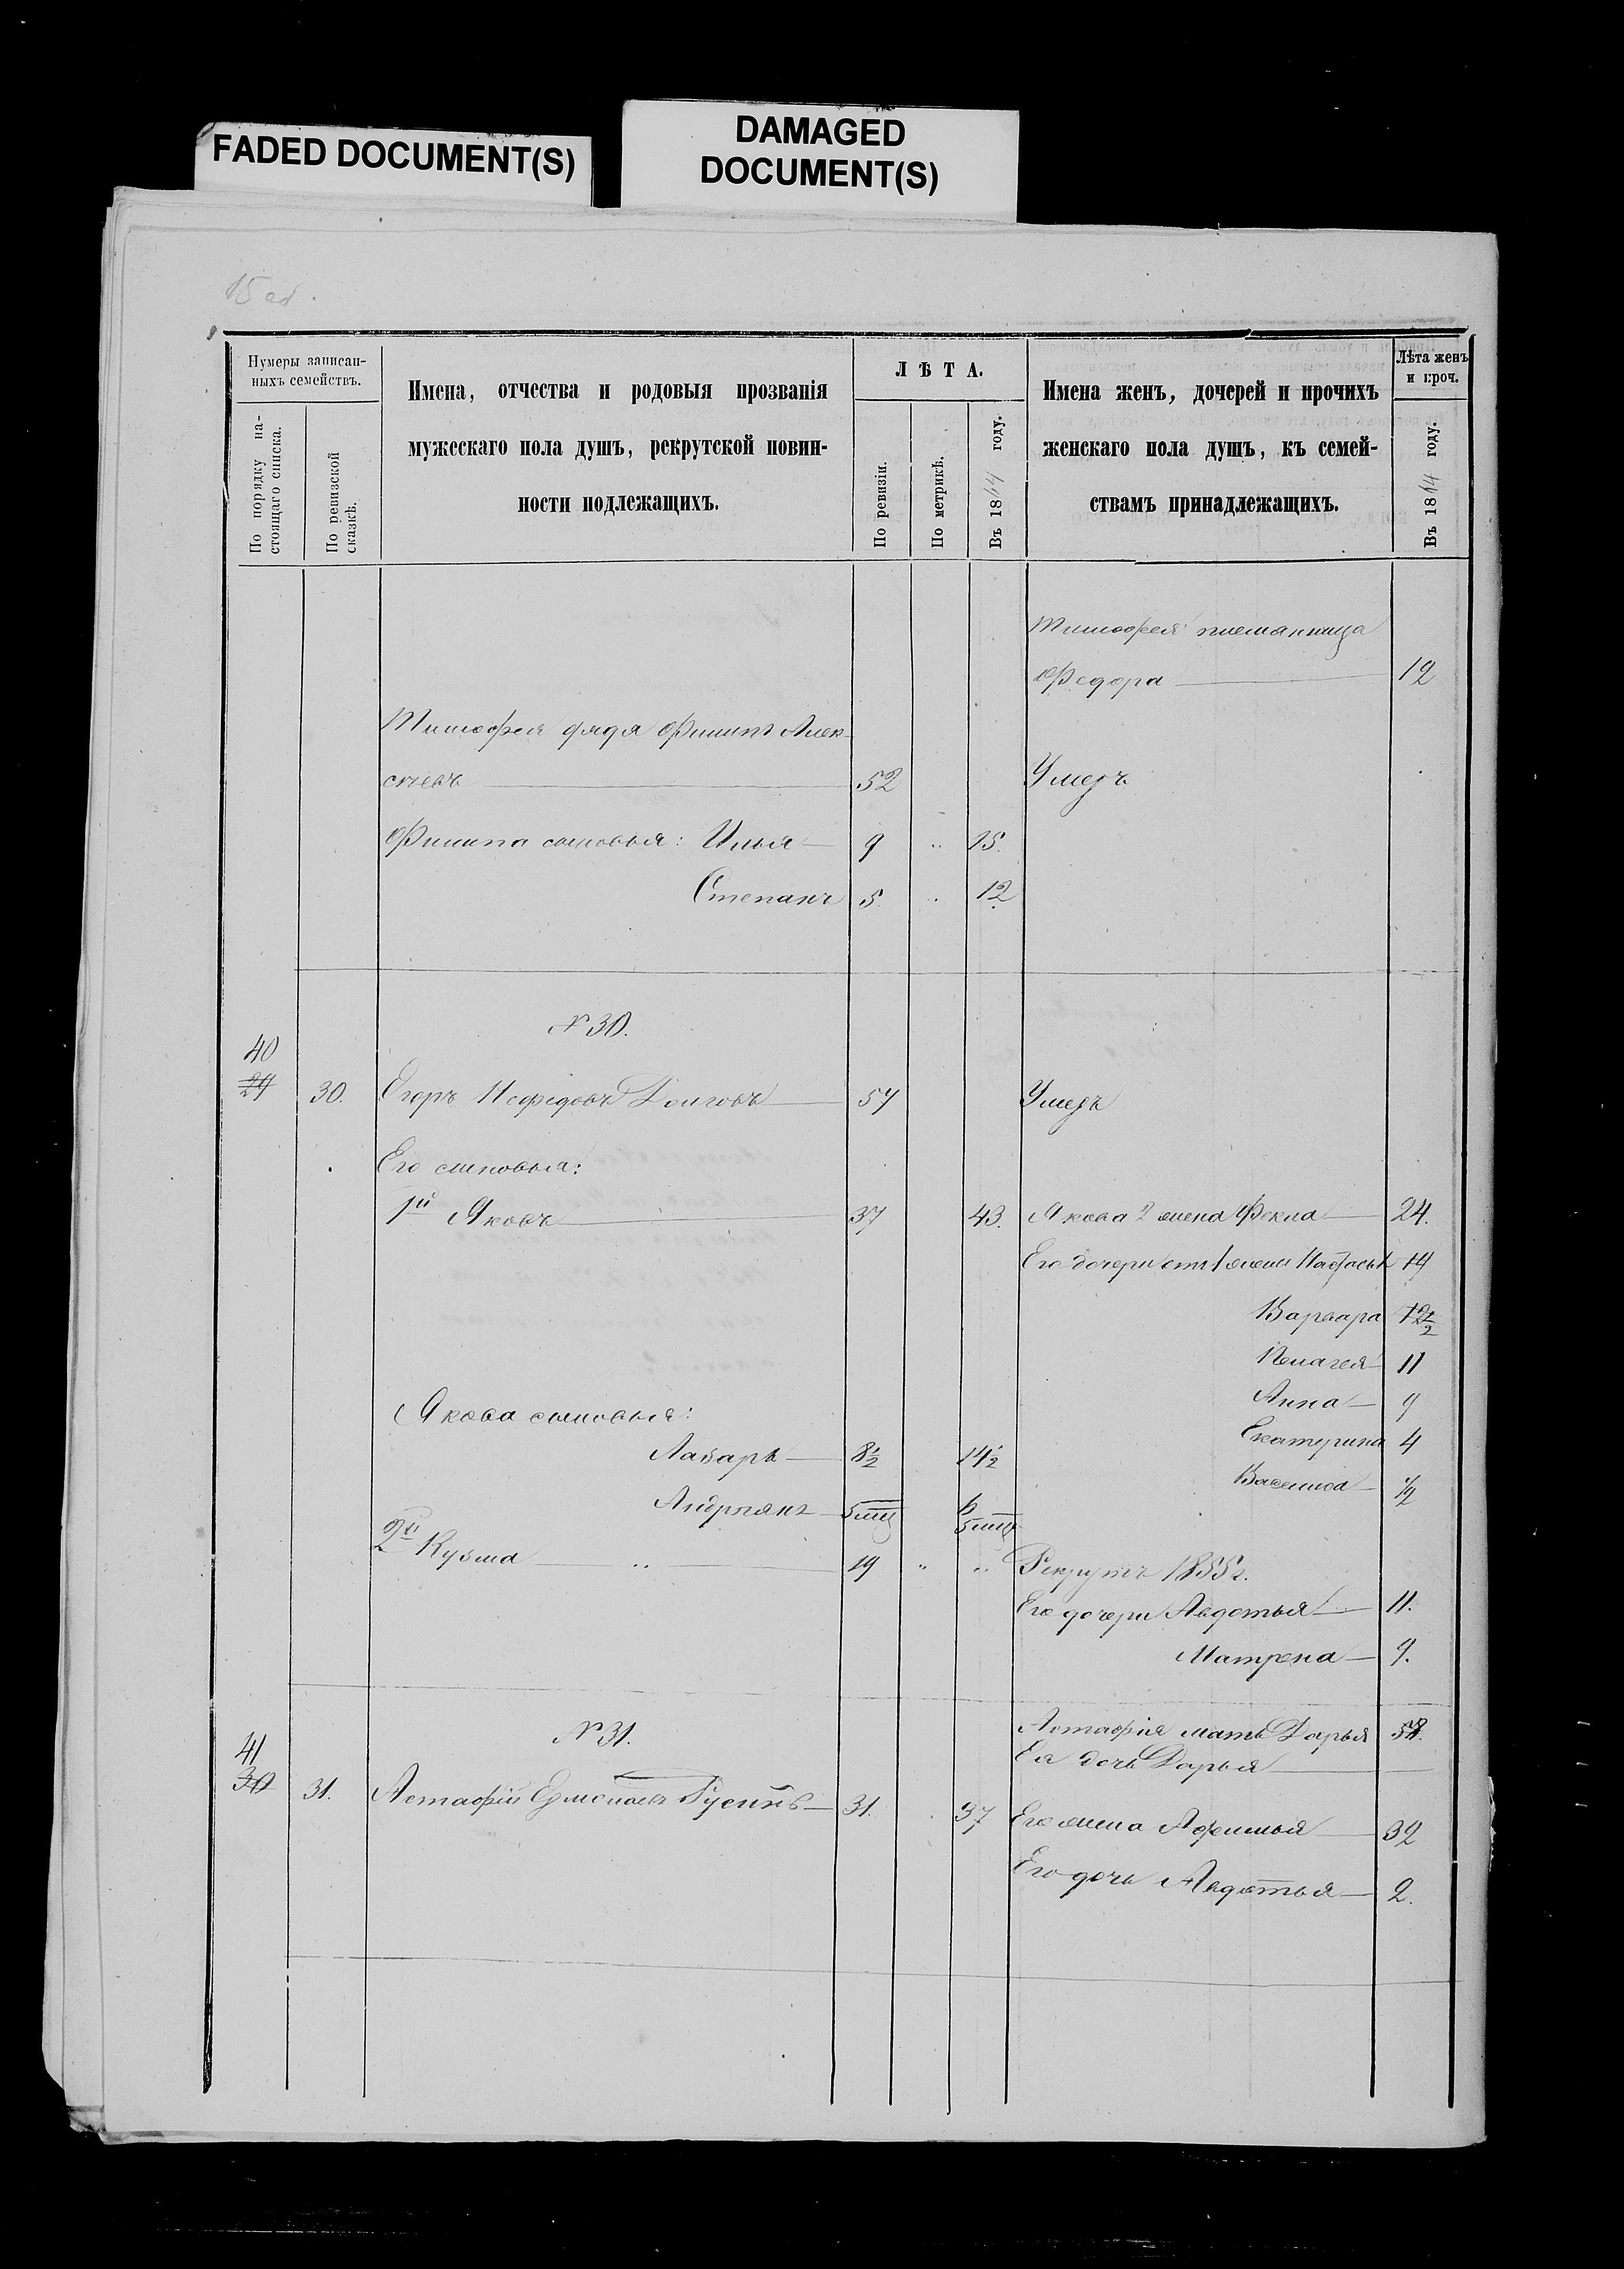 FADED DOCUMENT(S)
DAMAGED
DOCUMENT(S)
15 об.
Нумеры записан-
ныхъ семействъ.
По порядку на-
стоящаго списка.
По ревизской
сказкѣ.
Имена, отчества и родовыя прозванія
мужескаго пола душъ, рекрутской повин-
ности подлежащихъ.
ЛѢТА.
По ревизіи.
По метрикѣ.
Въ 1864 году.
Имена женъ, дочерей и прочихъ
женскаго пола душъ, къ семей-
ствамъ принадлежащихъ.
Лѣта женъ
и проч.
Въ 1864 году.
Тимофея племянница
Федора 12
Тимофея дядя Филипъ Алек-
сѣевъ 52 Умеръ
Филипа сыновья: Илья 9 15.
Степанъ 5 12
N 30.
40
29 30. Егоръ Нефедовъ Долговъ 57 Умеръ
Его сыновья:
1й Яковъ 37 43. Якова 2 жена Фекла 24.
Его дочери отъ 1 жены Настасья 14
Варвара 12 1/2
Пелагея 11
Якова сыновья: Анна 9
Лазарь 8 1/2 14 1/2 Екатерина 4
Василиса 1/2
Андріянъ 5 мц 6 5 мц
2й Кузма 19 Рекрутъ 1855 г.
Его дочери Авдотья 11.
Матрена 9.
N 31. Астафія мать Дарья 58.
41 Ея дочь Дарья
30 31. Астафій Ермолаевъ Русинъ 31. 37 Его жена Афимья 32
Его дочь Авдотья 2.